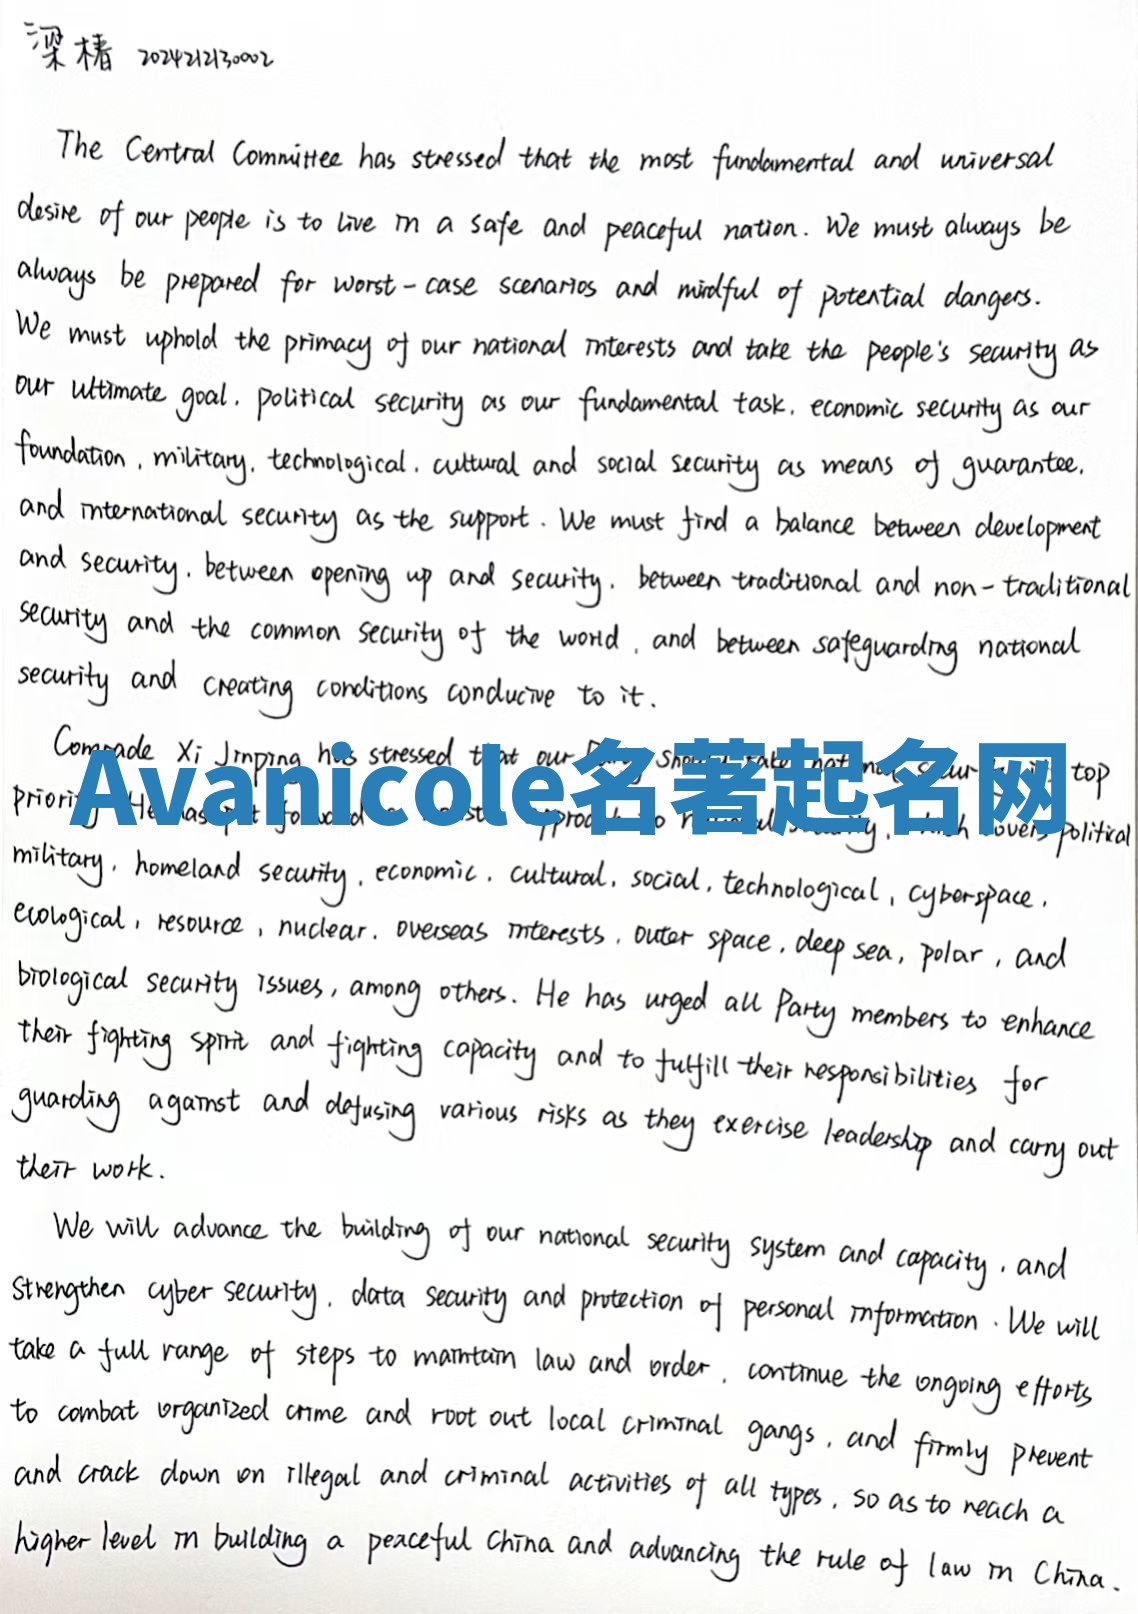 梁椿 2024212130002
The Central Committee has stressed that the most fundamental and universal
desire of our people is to live in a safe and peaceful nation. We must always be
always be prepared for worst-case scenarios and mindful of potential dangers.
We must uphold the primacy of our national interests and take the people's security as
our ultimate goal, political security as our fundamental task, economic security as our
foundation, military, technological, cultural and social security as means of guarantee,
and international security as the support. We must find a balance between development
and security, between opening up and security, between traditional and non-traditional
security and the common security of the world, and between safeguarding national
security and creating conditions conducive to it.
Comrade Xi Jinping has stressed that our top
Avanicole名著起名网
He has political
military, homeland security, economic, cultural, social, technological, cyberspace,
ecological, resource, nuclear, overseas interests, outer space, deep sea, polar, and
biological security issues, among others. He has urged all Party members to enhance
their fighting spirit and fighting capacity and to fulfill their responsibilities for
guarding against and defusing various risks as they exercise leadership and carry out
their work.
We will advance the building of our national security system and capacity, and
strengthen cyber security, data security and protection of personal information. We will
take a full range of steps to maintain law and order, continue the ongoing efforts
to combat organized crime and root out local criminal gangs, and firmly prevent
and crack down on illegal and criminal activities of all types, so as to reach a
higher level in building a peaceful China and advancing the rule of law in China.